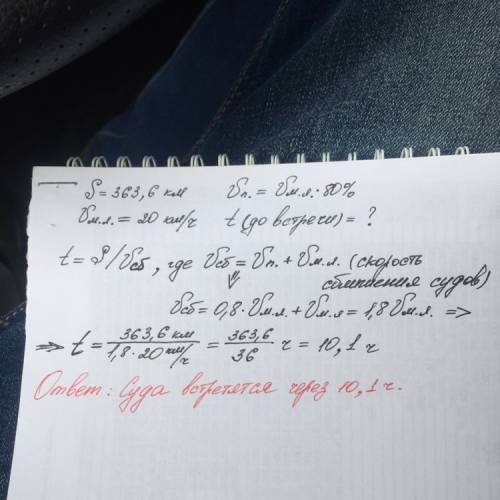 S = 363,6 км   Vп. = Vм.л. · 80%
Vм.л. = 20 км/ч   t (до встречи) = ?
t = S/Vсб, где Vсб = Vп. + Vм.л. (скорость
сближения судов)
⇓
Vсб = 0,8 · Vм.л. + Vм.л = 1,8 Vм.л. =>
=> t = 363,6 км / 1,8 · 20 км/ч = 363,6 / 36 ч = 10,1 ч
Ответ: Суда встретятся через 10,1 ч.